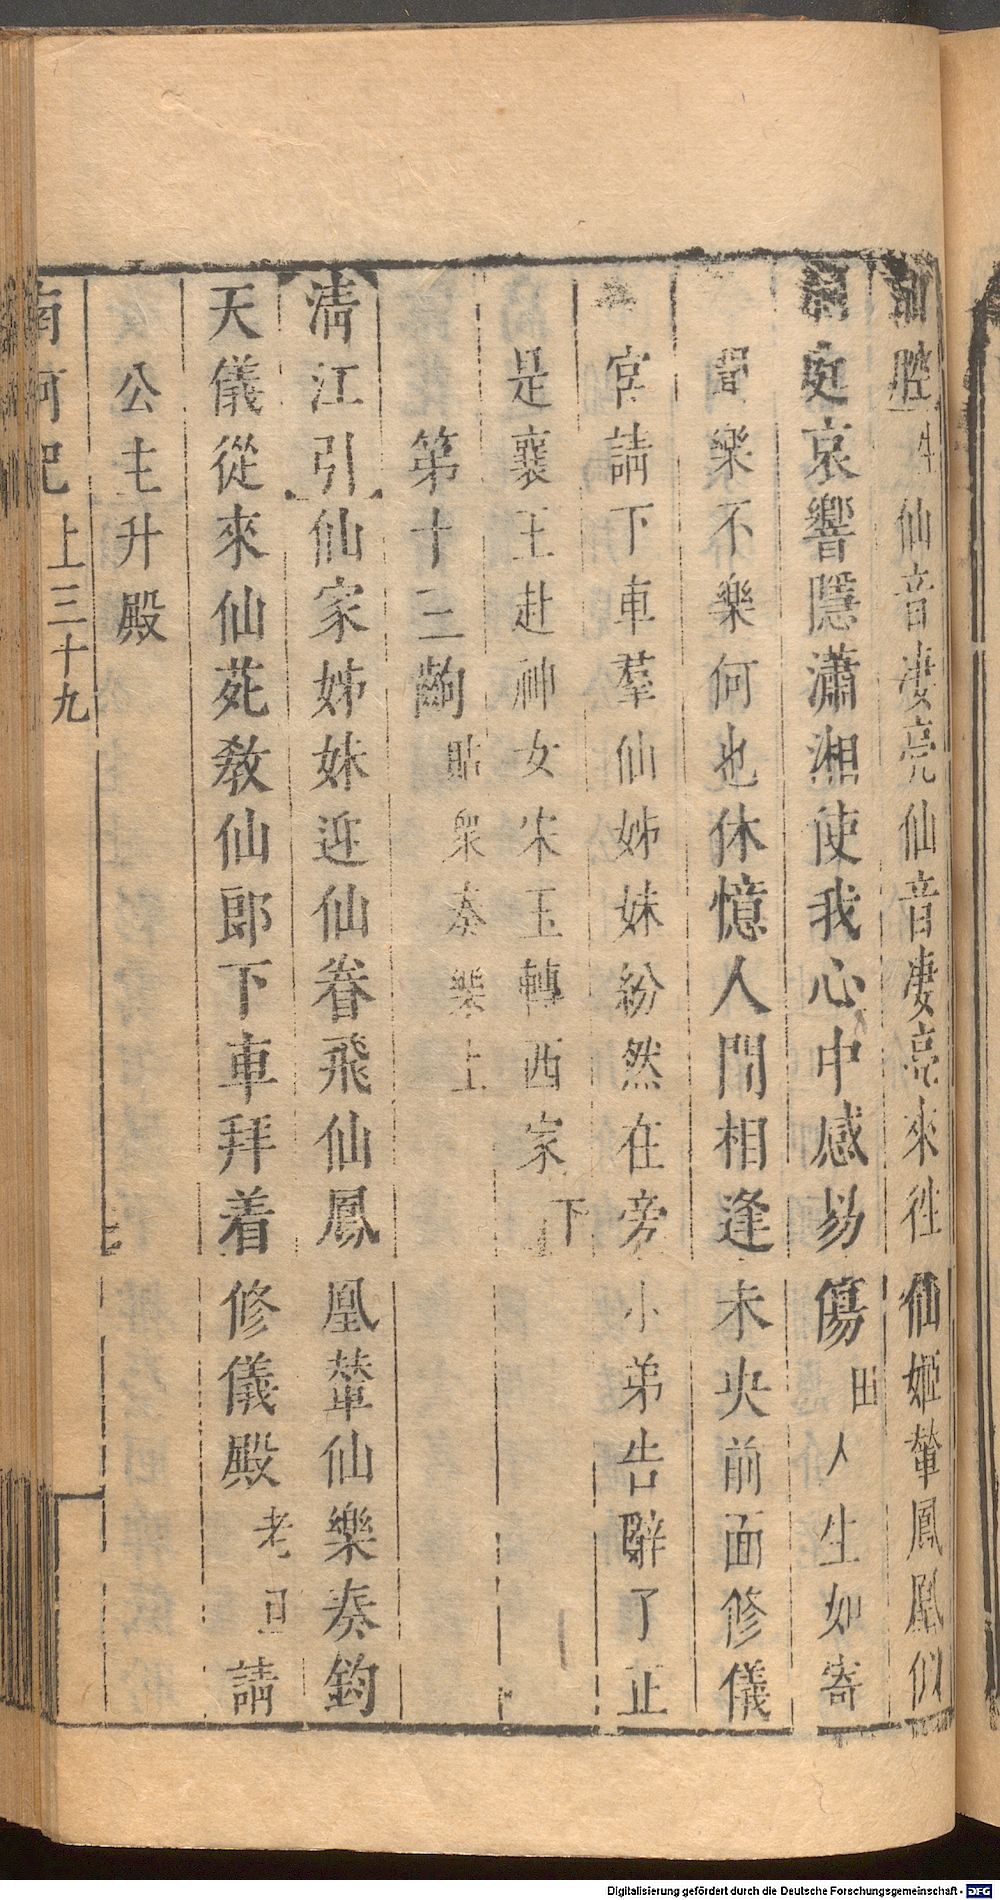 前腔生仙音凄亮仙音凄亮來徃仙姬輦鳳凰似
洞庭哀響隱瀟湘使我心中感易傷田人生如寄
聞樂不樂何也休憶人間相逢未央前面修儀
宮請下車羣仙姊妹紛然在旁小弟告辭了正
是襄王赴神女宋玉轉西家下
第十三齣貼衆奏樂上
清江引仙家姊妹迎仙眷飛仙鳳凰輦仙樂奏鈞
天儀從來仙苑教仙郎下車拜着修儀殿老旦請
公主升殿
南柯記上三十九
Digitalisierung gefördert durch die Deutsche Forschungsgemeinschaft - DFG